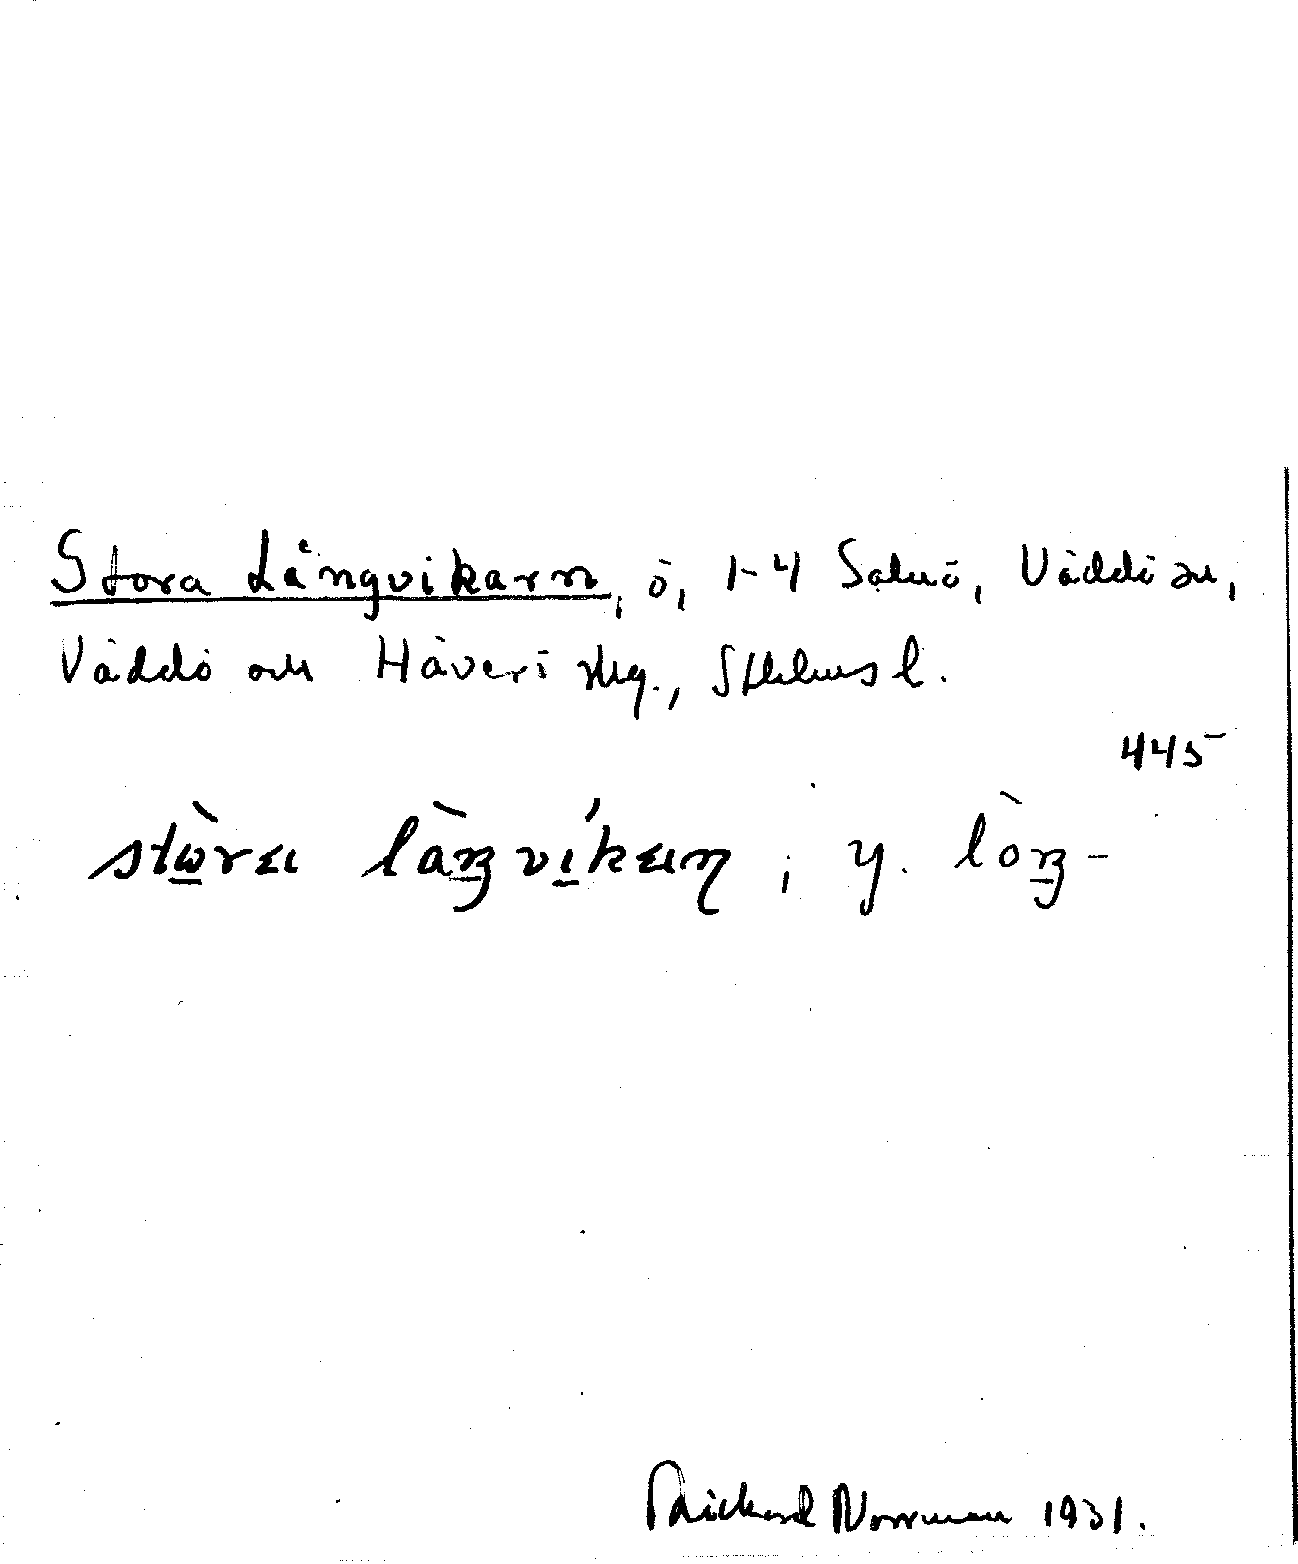 Stora Långvikarn, ö, 1-4 Salnö, Väddö sn,
Väddö och Häverö skg., Sthlms l.
445
stωra làŋvíkaɳ; y. lòŋ-
Rickard Norrman 1931.